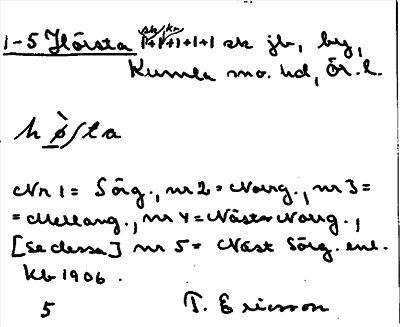 1-5 Hörsta 1+1+1+1+1 sk jb, by,
Kumla sn. hd, Ör. l.
Nr 1 = Sörg., nr 2 = Norrg., nr 3 =
= Mellang., nr 4 = Näst Norrg.,
[Se dessa] nr 5 = Näst Sörg. enl.
Kb 1906.
5 T. Ericsson